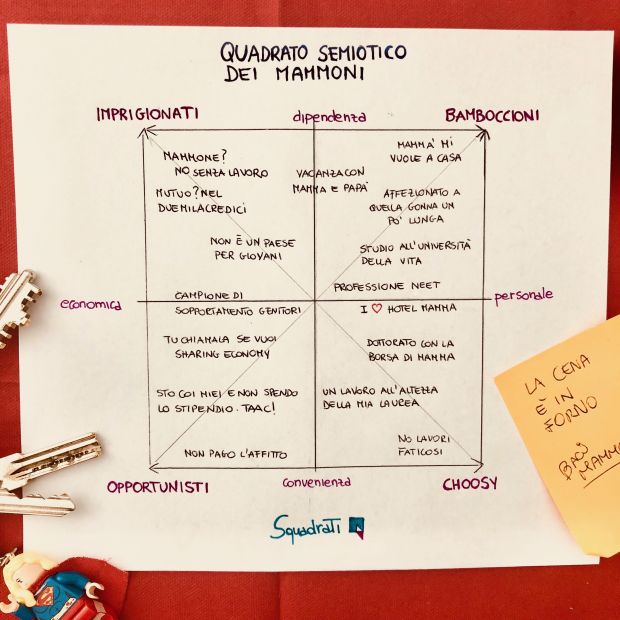 QUADRATO SEMIOTICO
DEI MAMMONI
IMPRIGIONATI
dipendenza
BAMBOCCIONI
MAMMONE?
NO SENZA LAVORO
MUTUO? NEL
DUEMILACREDICI
NON È UN PAESE
PER GIOVANI
VACANZA CON
MAMMA E PAPA'
MAMMA' MI
VUOLE A CASA
AFFEZIONATO A
QUELLA GONNA UN
PO' LUNGA
STUDIO ALL'UNIVERSITÀ
DELLA VITA
PROFESSIONE NEET
economica
personale
CAMPIONE DI
SOPPORTAMENTO GENITORI
TU CHIAMALA SE VUOI
SHARING ECONOMY
STO COI MIEI E NON SPENDO
LO STIPENDIO. TAAC!
NON PAGO L'AFFITTO
I ♡ HOTEL MAMMA
DOTTORATO CON LA
BORSA DI MAMMA
UN LAVORO ALL'ALTEZZA
DELLA MIA LAUREA
NO LAVORI
FATICOSI
OPPORTUNISTI
convenienza
CHOOSY
SquadraTi
LA CENA
È IN
FORNO
BACI
MAMMA